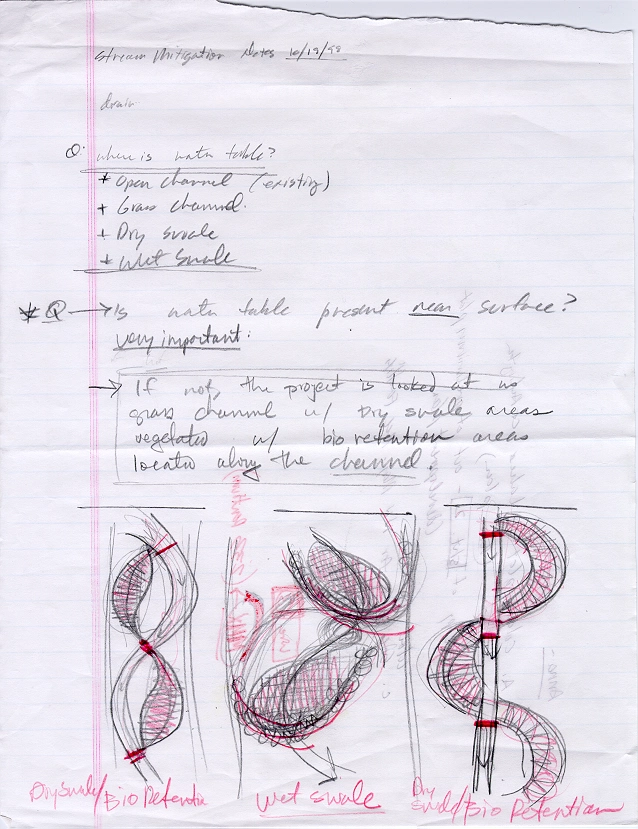 Stream Mitigation Notes 10/19/98
drain
Q: where is water table?
* Open channel (existing)
+ Grass channel.
+ Dry swale
* Wet Swale
* Q → Is water table present near surface?
very important:
→ If not, the project is looked at as
grass channel w/ Dry swale areas
vegetated w/ bio retention areas
located along the channel.
Dry Swale/Bio Retention
Wet Swale
Dry Swale/Bio Retention